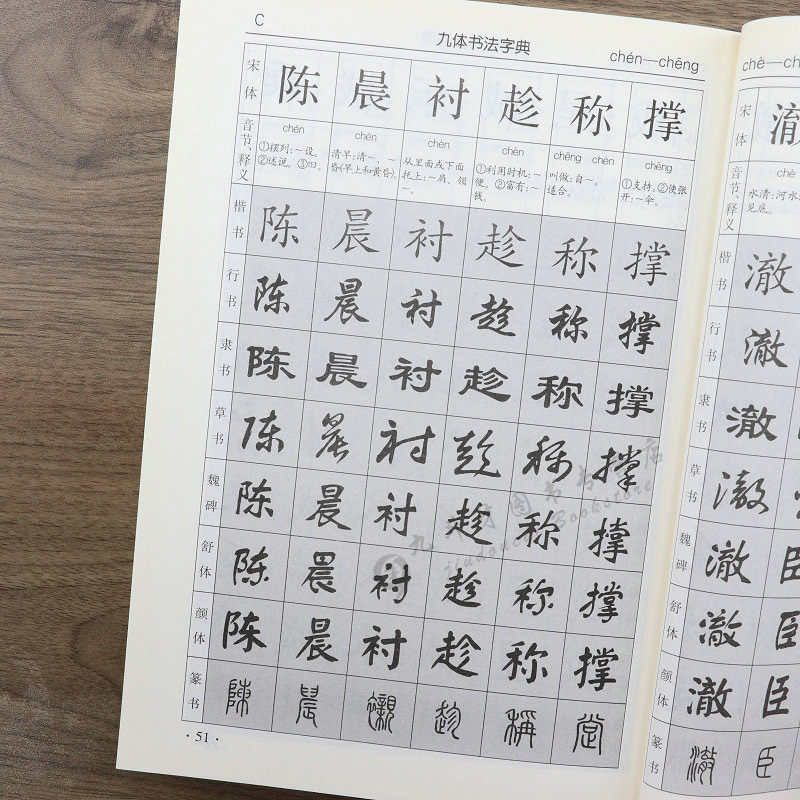 C 九体书法字典 chén—chēng
宋体 陈 晨 衬 趁 称 撑
音节、释义
chén ①摆列:~设。②述说。③旧。
chén 清早:清~、~昏(早上和黄昏)。
chèn 从里面或下面托上:~肩、领~。
chèn ①利用时机:~便。②富有:~钱。
chēng chèn 叫做:自~。适合。
chēng ①支持。②使张开:~伞。
楷书 陈 晨 衬 趁 称 撑
行书 陈 晨 衬 趁 称 撑
隶书 陈 晨 衬 趁 称 撑
草书 陈 晨 衬 趁 称 撑
魏碑 陈 晨 衬 趁 称 撑
舒体 陈 晨 衬 趁 称 撑
颜体 陈 晨 衬 趁 称 撑
篆书 陳 晨 襯 趁 稱
· 51 ·
chè—ch
宋体 澈
音节、释义
chè 水清:河水 见底。
楷书 澈
行书 澈
隶书 澈
草书 澈
魏碑 澈 臣
舒体 澈 臣
颜体 澈 臣
篆书 澈 臣